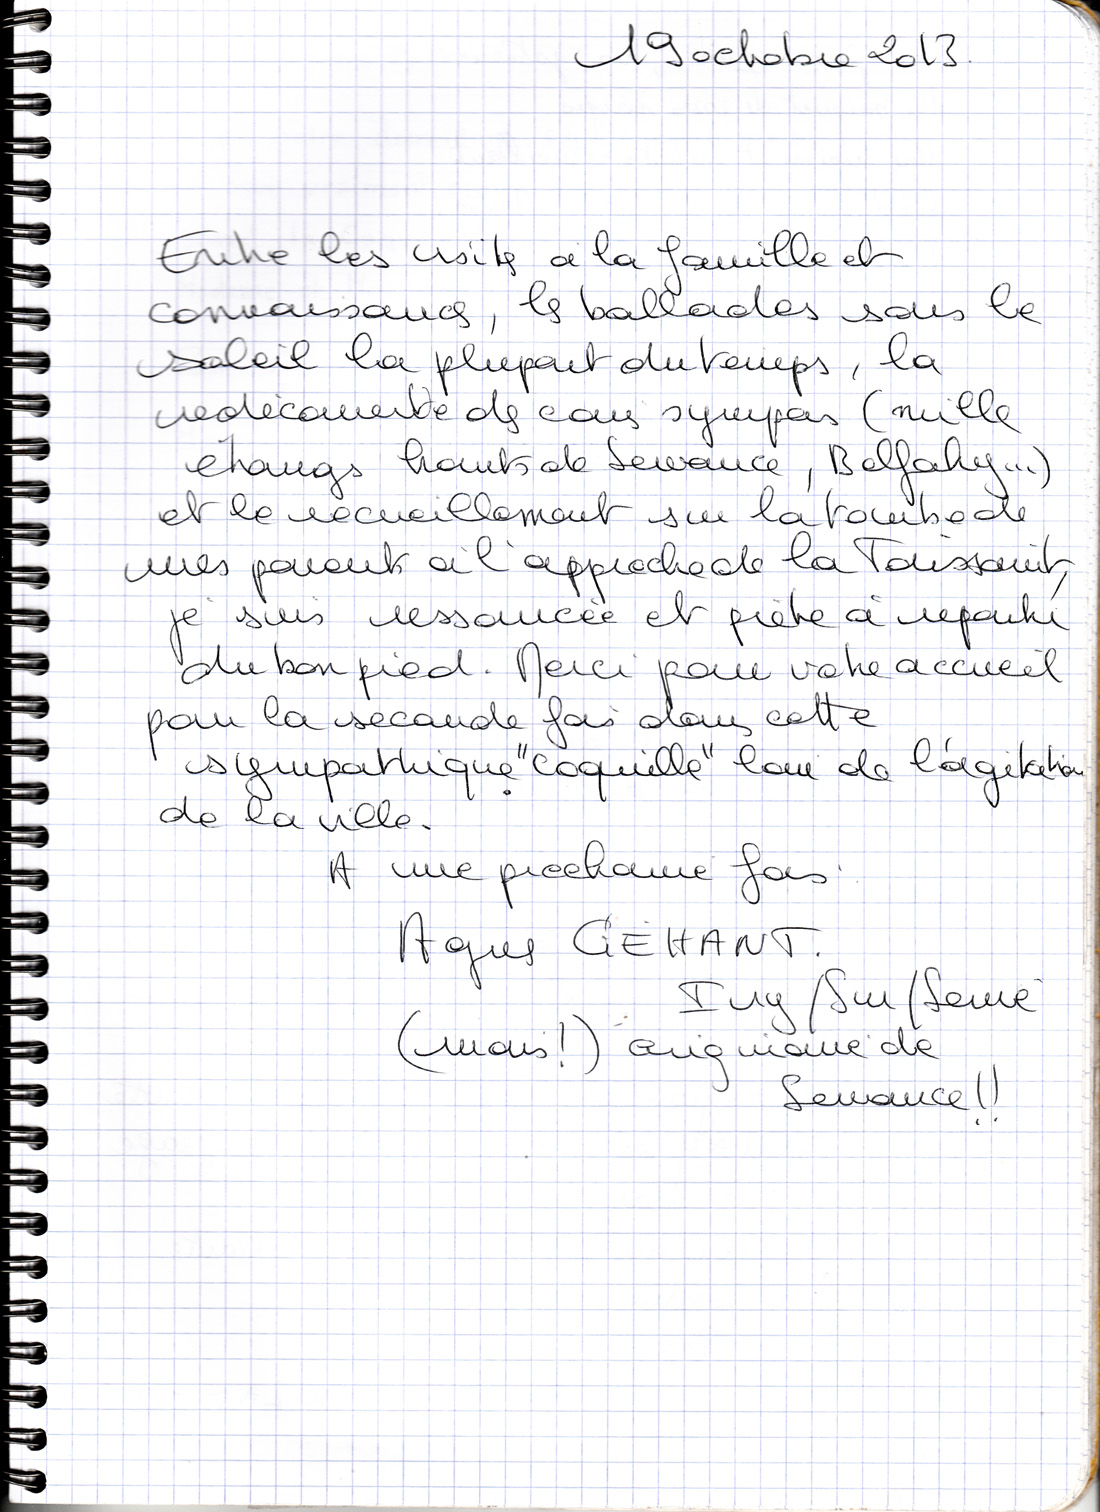 19 octobre 2013.
Entre les visites à la famille et
connaissances, les ballades sous le
soleil la plupart du temps, la
redécouverte des coins sympas (mille
étangs hauts de Servance, Belfahy...)
et le recueillement sur la tombe de
mes parents à l'approche de la Toussaint,
je suis ressourcée et prête à repartir
du bon pied. Merci pour votre accueil
pour la seconde fois dans cette
sympathique "Coquille" loin de l'agitation
de la ville.
A une prochaine fois.
Agnès GEHANT.
Ivry/Sur/Seine
(mais!) originaire de
Servance!!